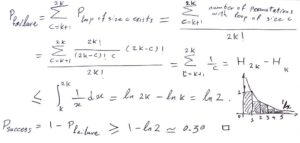 P_failure = Σ_{c=k+1}^{2k} P_loop of size c exists = Σ_{c=k+1}^{2k} (number of permutations with loop of size c) / 2k! =
= Σ_{c=k+1}^{2k} ((2k!) / ((2k-c)! c) · (2k-c)!) / 2k! = Σ_{c=k+1}^{2k} 1/c = H_{2k} - H_k
≤ ∫_k^{2k} 1/x dx = ln 2k - ln k = ln 2.
P_success = 1 - P_failure ≥ 1 - ln 2 ≃ 0.30 □